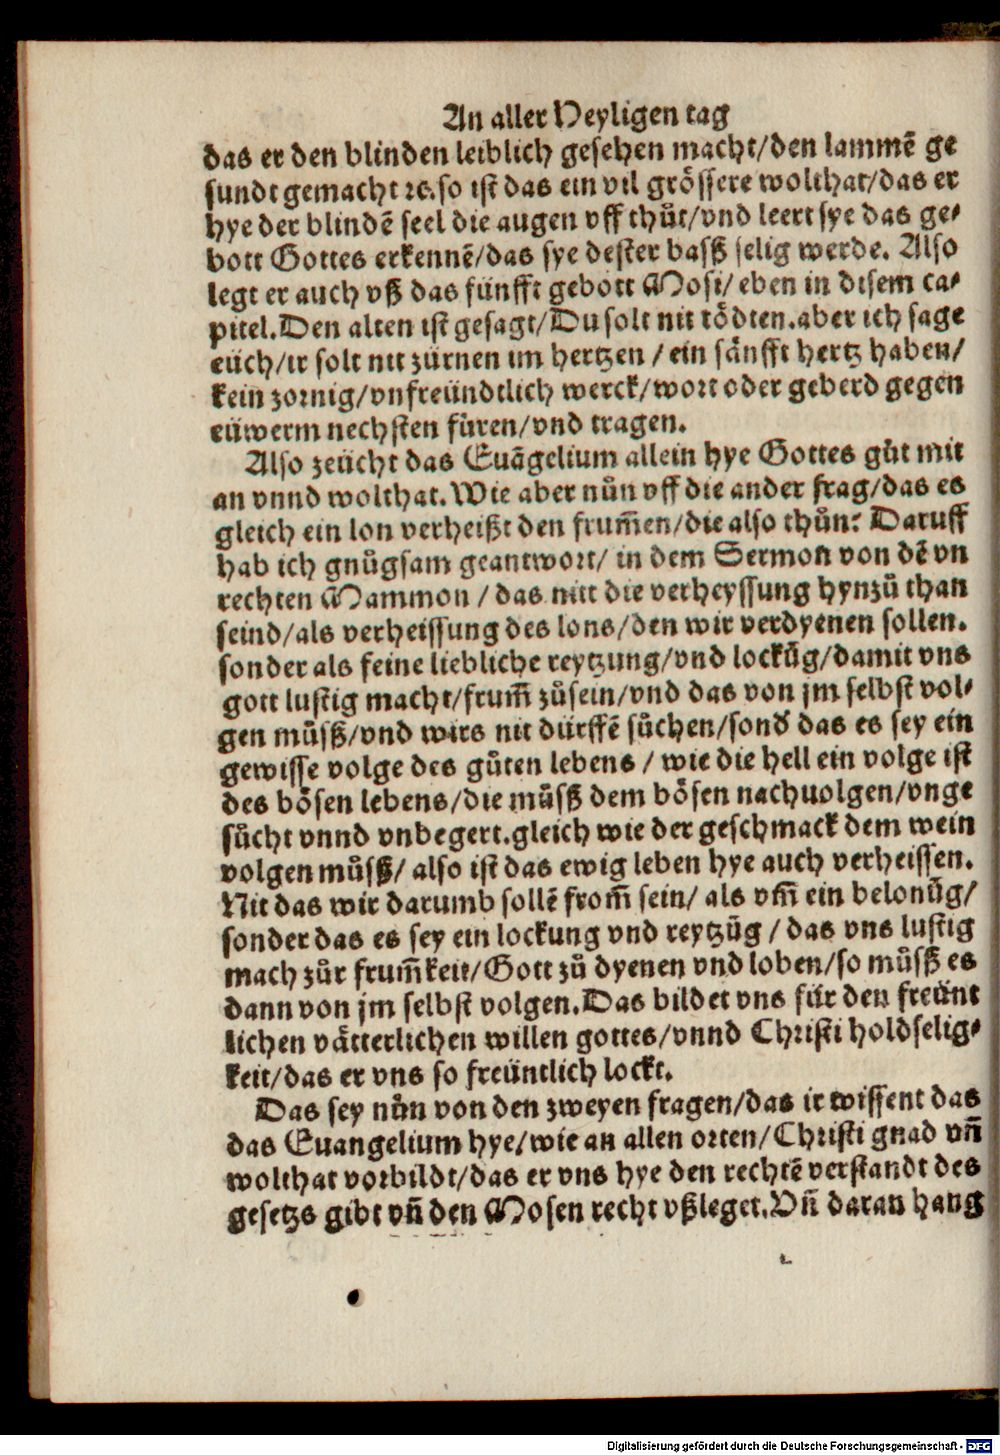 An aller Heyligen tag
das er den blinden leiblich gesehen macht/den lammē ge
sundt gemacht ꝛc.so ist das ein vil grössere wolthat/das er
hye der blindē seel die augen vff thůt/vnd leert sye das ge⸗
bott Gottes erkennē/das sye dester basß selig werde. Also
legt er auch vß das fünfft gebott Mosi/ eben in disem ca⸗
pitel.Den alten ist gesagt/Du solt nit tödten.aber ich sage
eüch/ir solt nit zürnen im hertzen / ein sänfft hertz haben/
kein zornig/vnfreündtlich werck/wort oder geberd gegen
eüwerm nechsten füren/vnd tragen.
Also zeücht das Euāgelium allein hye Gottes gůt mit
an vnnd wolthat. Wie aber nůn vff die ander frag/das es
gleich ein lon verheißt den frum̄en/die also thůn? Daruff
hab ich gnůgsam geantwort/ in dem Sermon von dē vn
rechten Mammon / das nitt die verheyssung hynzů than
seind/als verheissung des lons/den wir verdyenen sollen.
sonder als feine liebliche reytzung/vnd lockūg/damit vns
gott lustig macht/frum̄ zůsein/vnd das von jm selbst vol⸗
gen můsß/vnd wirs nit dürffē sůchen/sond᷑ das es sey ein
gewisse volge des gůten lebens / wie die hell ein volge ist
des bösen lebens/die můsß dem bösen nachuolgen/vnge
sůcht vnnd vnbegert.gleich wie der geschmack dem wein
volgen můsß/ also ist das ewig leben hye auch verheissen.
Nit das wir darumb sollē from̄ sein/ als vm̄ ein belonūg/
sonder das es sey ein lockung vnd reytzūg / das vns lustig
mach zůr frum̄keit/Gott zů dyenen vnd loben/so můsß es
dann von jm selbst volgen.Das bildet vns für den freünt
lichen vätterlichen willen gottes/vnnd Christi holdselig⸗
keit/das er vns so freüntlich lockt.
Das sey nůn von den zweyen fragen/das ir wissent das
das Euangelium hye/wie an allen orten/Christi gnad vn̄
wolthat vorbildt/das er vns hye den rechtē verstandt des
gesetzs gibt vn̄ den Mosen recht vßleget.Vn̄ daran hang
Digitalisierung gefördert durch die Deutsche Forschungsgemeinschaft - DFG